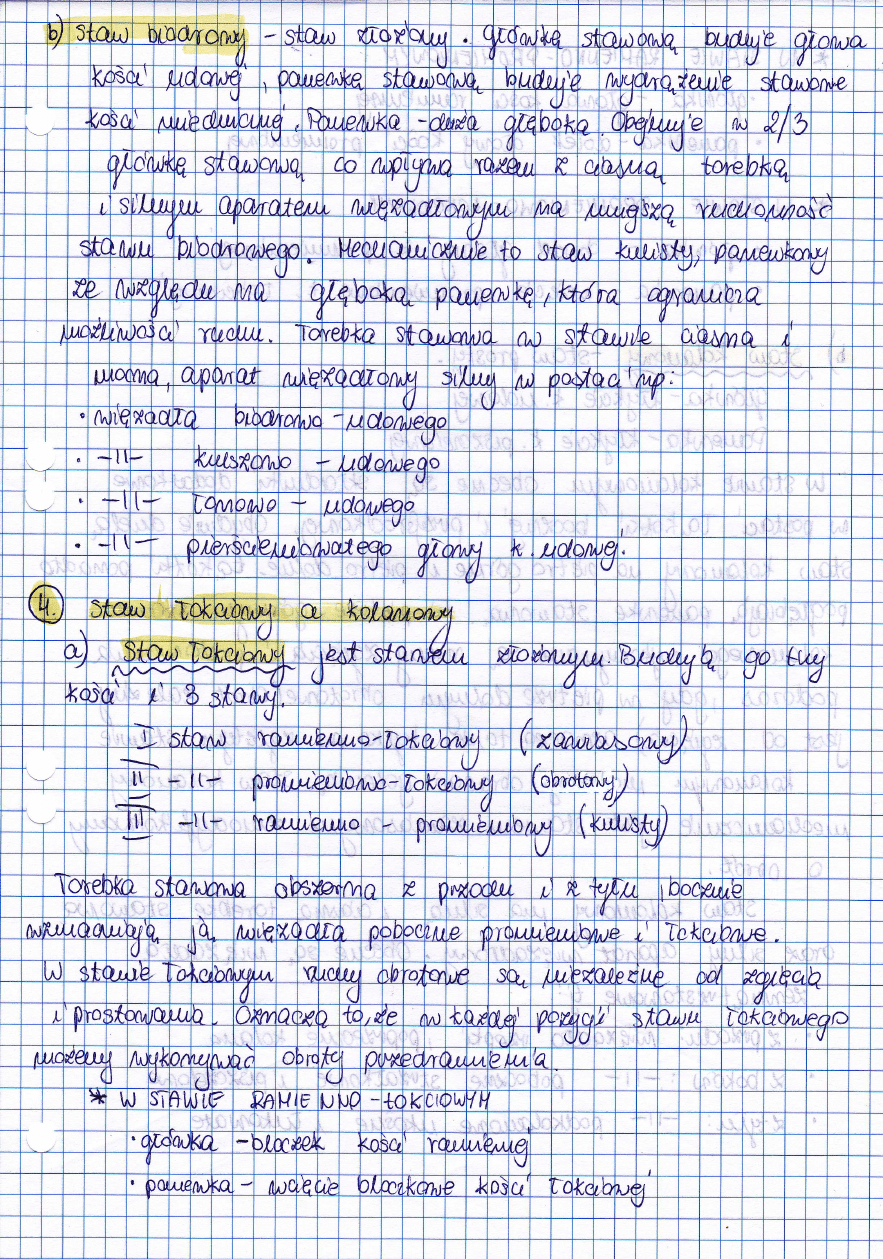 b) staw biodrowy - staw złożony. główkę stawową buduje głowa
kości udowej, panewkę stawową buduje wydrążenie stawowe
kości miednicznej. Panewka - duża głęboka. Obejmuje w 2/3
główkę stawową co wpływa razem z ciasną torebką
i silnym aparatem więzadłowym na mniejszą ruchomość
stawu biodrowego. Mechanicznie to staw kulisty, panewkowy
ze względu na głęboką panewkę, która ogranicza
możliwości ruchu. Torebka stawowa w stawie ciasna i
mocna, aparat więzadłowy silny w postaci np:
· więzadła biodrowo - udowego
· -||- kulszowo - udowego
· -||- łonowo - udowego
· -||- pierścieniowatego głowy k. udowej.
4. Staw łokciowy a kolanowy
a) Staw łokciowy jest stawem złożonym. Budują go trzy
kości i 3 stawy.
I staw ramienno-łokciowy (zawiasowy)
II -||- promieniowo-łokciowy (obrotowy)
III -||- ramienno - promieniowy (kulisty)
Torebka stawowa obszerna z przodu i z tyłu, bocznie
wzmacniają ją więzadła poboczne promieniowe i łokciowe.
W stawie łokciowym ruchy obrotowe są niezależne od zgięcia
i prostowania. Oznacza to, że w każdej pozycji stawu łokciowego
możemy wykonywać obroty przedramienia.
* W STAWIE RAMIENNO-ŁOKCIOWYM
· główka - bloczek kości ramiennej
· panewka - wcięcie bloczkowe kości łokciowej